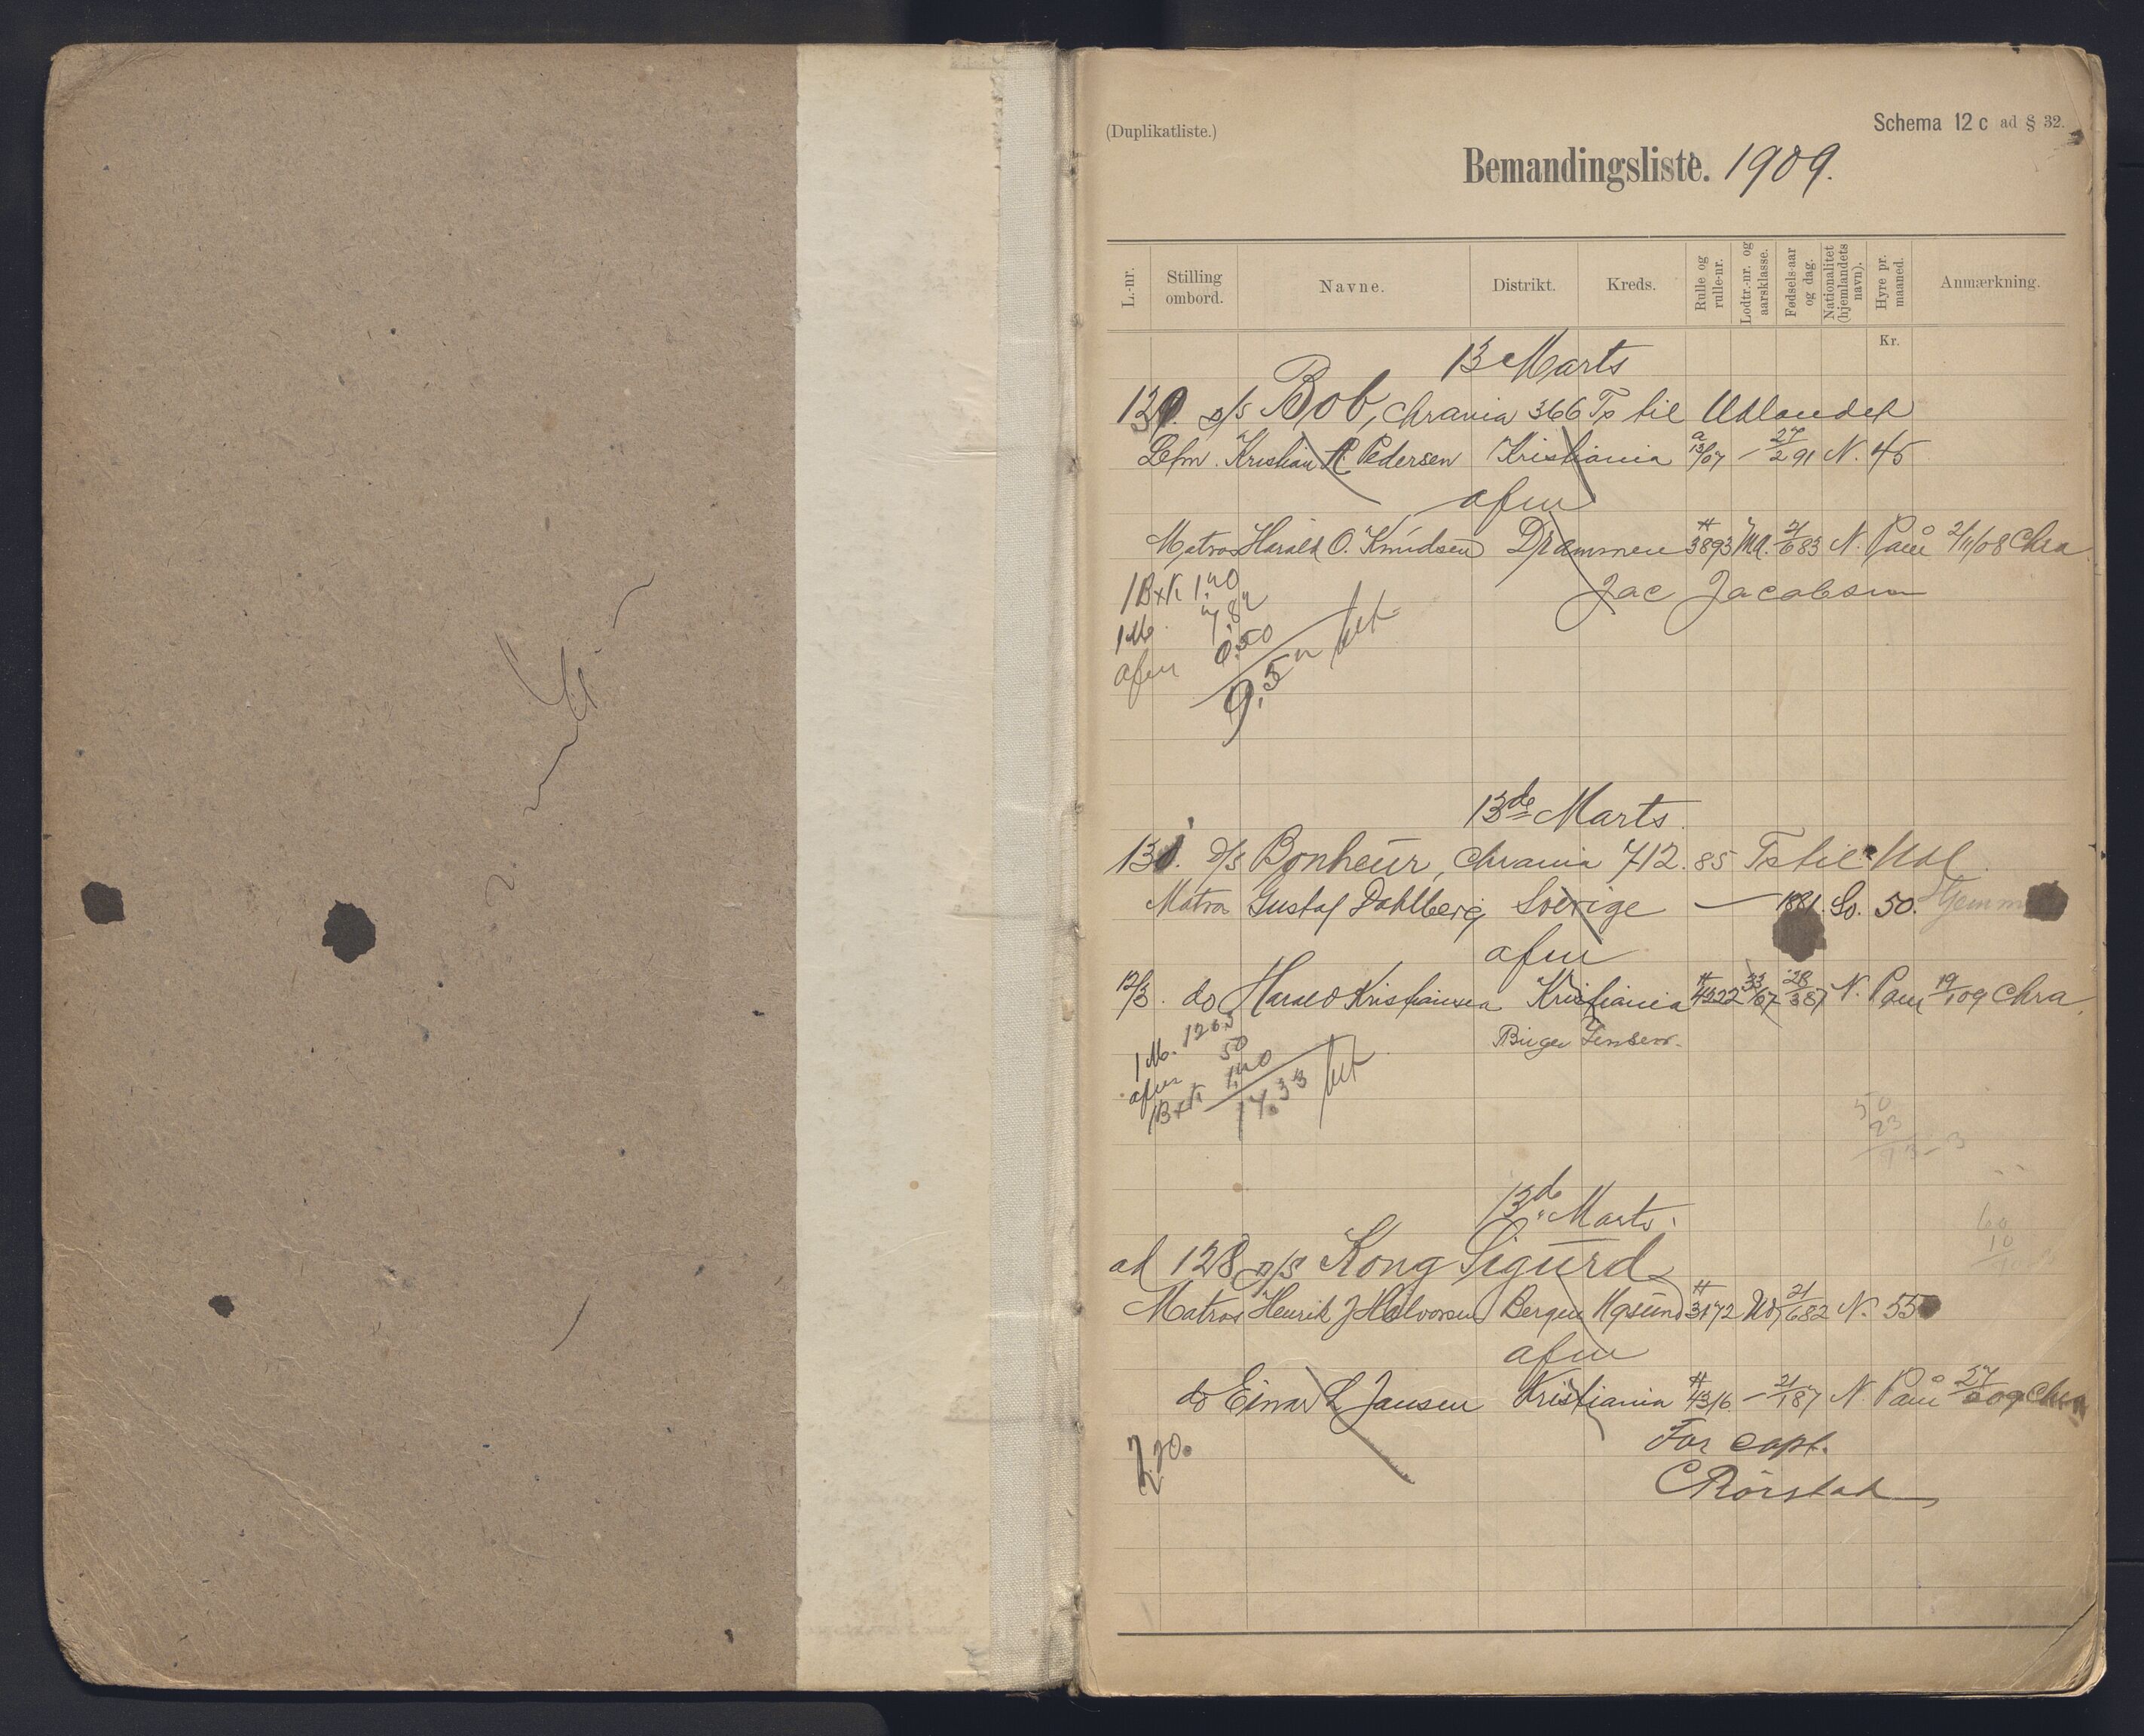 (Duplikatliste.)
Schema 12 c ad § 32.
Bemandingsliste. 1909.
L.-nr.
Stilling ombord.
Navne.
Distrikt.
Kreds.
Rulle og rulle-nr.
Lodtr.-nr. og aarsklasse.
Fødsels-aar og dag.
Nationalitet (hjemlandets navn).
Hyre pr. maaned.
Anmærkning.
Kr.
13 Marts
130. D/S Bob, Chrania 366 Ts til Udlandet
Kristian R. Pedersen Kristiania a 13/07 – 27/2 91 N. 45
afm
Matros Harald O. Knudsen Drammen 3893 2/6 83 N. Paam 2/11/08 Chra
Jac Jacobsen
1 B+K 1.40
1 M. 7,82
afm 0.50
9,5
13de Marts
131. D/S Bonheur, Chrania 712.85 Ts til Udl
Matros Gustaf Dahlberg Sverige — 1881. Sv. 50. Hjem
afm
12/3. do Harald Kristiansen Kristiania 4222 33/07 28/3 87 N. Paam 19/1 09 Chra.
Birger Jensen.
1 M. 12.
afm 50
1 B+K 1,40
14.33
50
23
13de Marts.
ad 128 D/S Kong Sigurd
Matros Henrik J Halvorsen Bergen 3172 21/6 82 N. 55
afm
do Einar L Jansen Kristiania 4316 – 21/1 87 N Paam 27/2 09 Chra
For capt.
C Rörstad
60
10